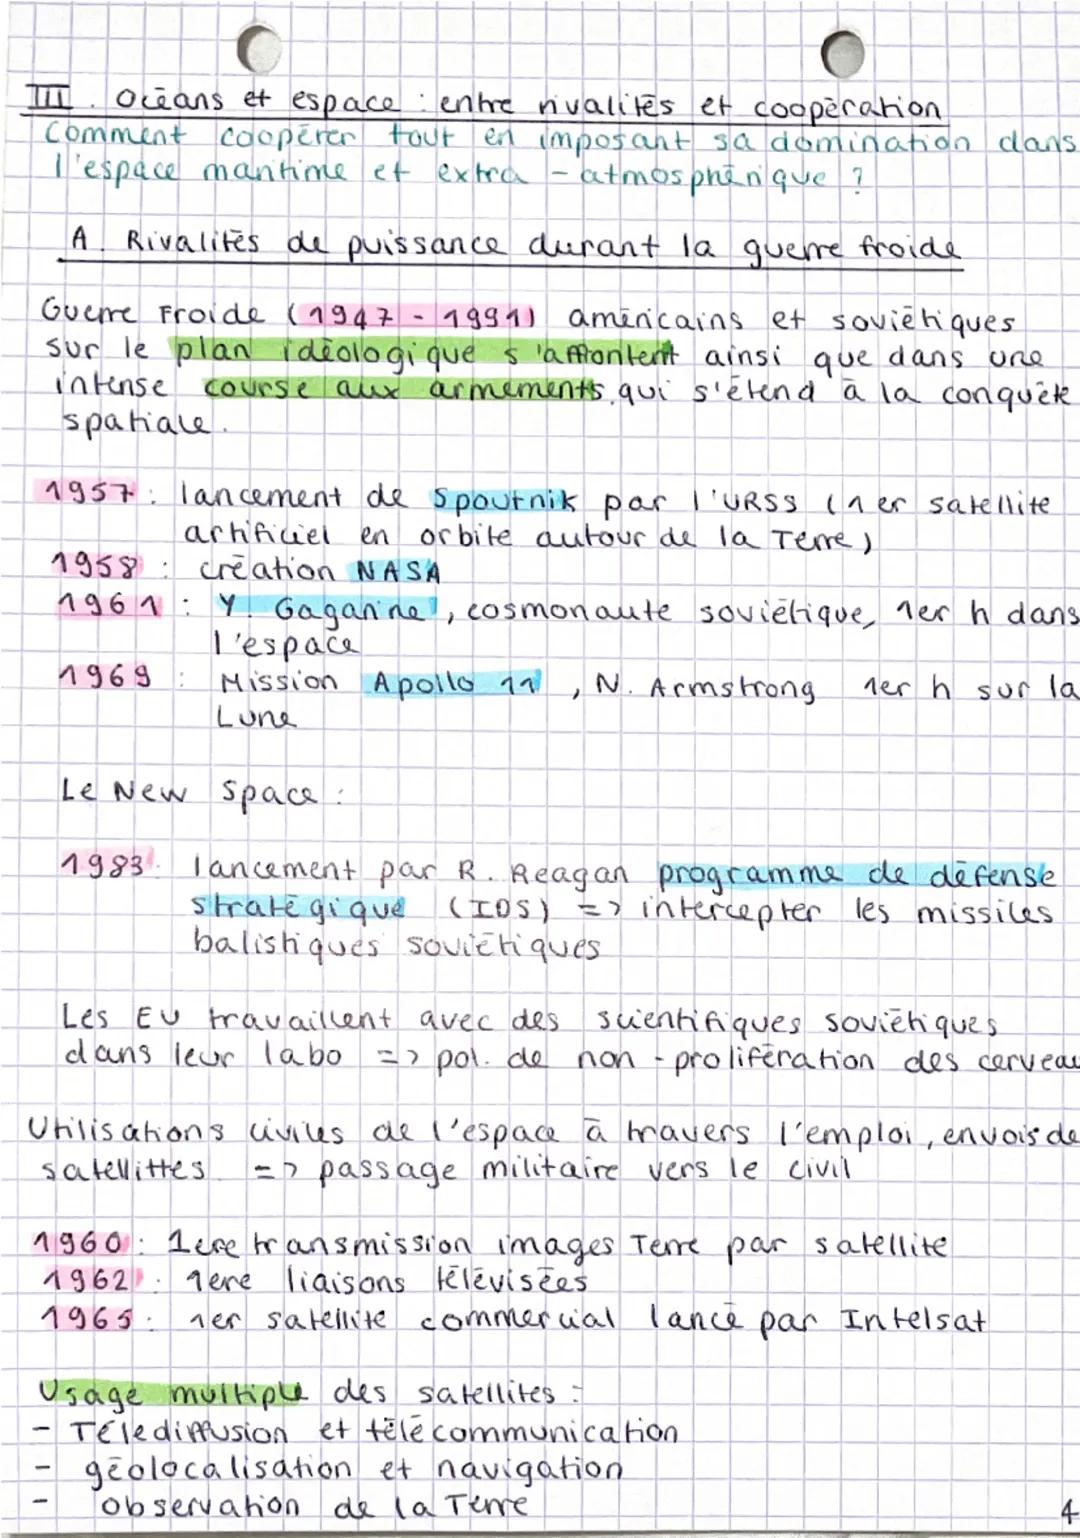 III. Océans et espace : entre rivalités et coopération
Comment coopérer tout en imposant sa domination dans
l'espace maritime et extra-atmosphérique ?
A. Rivalités de puissance durant la guerre froide
Guerre Froide (1947-1991) américains et soviétiques
sur le plan idéologique s'affrontent ainsi que dans une
intense course aux armements qui s'étend à la conquête
spatiale.
1957 : lancement de Spoutnik par l'URSS (1er satellite
artificiel en orbite autour de la Terre)
1958 : création NASA
1961 : Y. Gagarine, cosmonaute soviétique, 1er h dans
l'espace
1969 : Mission Apollo 11, N. Armstrong 1er h sur la
Lune
Le New Space :
1983 : lancement par R. Reagan programme de défense
stratégique (IDS) => intercepter les missiles
balistiques soviétiques
Les EU travaillent avec des scientifiques soviétiques
dans leur labo => pol. de non-prolifération des cerveau
Utilisations civiles de l'espace à travers l'emploi, envois de
satellittes => passage militaire vers le civil
1960 : 1ere transmission images Terre par satellite
1962 : 1ere liaisons télévisées
1965 : 1er satellite commercial lancé par Intelsat
Usage multiple des satellites :
- Télédiffusion et télécommunication
- géolocalisation et navigation
- observation de la Terre
4